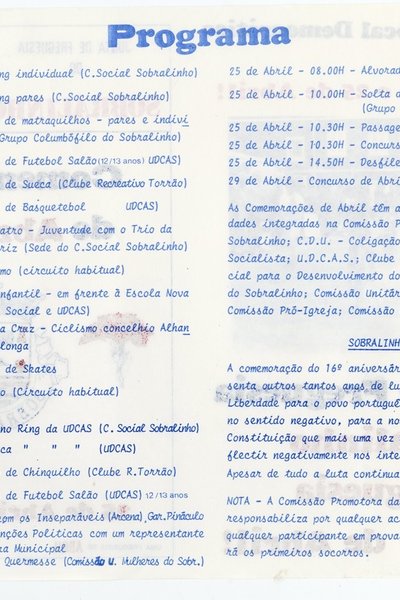 Programa
ng individual (C.Social Sobralinho)
ng pares (C.Social Sobralinho)
de matraquilhos - pares e indivi
Grupo Columbófilo do Sobralinho)
de Futebol Salão (12/13 anos) UDCAS)
de Sueca (Clube Recreativo Torrão)
de Basquetebol UDCAS)
atro - Juventude com o Trio da
riz (Sede do C.Social Sobralinho)
mo (circuito habitual)
nfantil - em frente à Escola Nova
Social e UDCAS)
a Cruz - Ciclismo concelhio Alhan
longa
de Skates
o (Circuito habitual)
no Ring da UDCAS (C.Social Sobralinho)
ca " " " (UDCAS)
de Chinquilho (Clube R.Torrão)
de Futebol Salão (UDCAS) 12/13 anos
com os Inseparáveis (Arcena), Gar. Pináculo
nções Politicas com um representante
a Municipal
Quermesse (Comissão U. Mulheres do Sobr.)
25 de Abril - 08.00H - Alvorad
25 de Abril - 10.00H - Solta d
(Grupo
25 de Abril - 10.30H - Passage
25 de Abril - 10.30H - Concurs
25 de Abril - 14.50H - Desfile
29 de Abril - Concurso de Abri
As Comemorações de Abril têm a
dades integradas na Comissão P
Sobralinho; C.D.U. - Coligação
Socialista; U.D.C.A.S.; Clube
cial para o Desenvolvimento do
do Sobralinho; Comissão Unitár
Comissão Pró-Igreja; Comissão
SOBRALINH
A comemoração do 16º aniversár
senta outros tantos anos de lu
Liberdade para o povo portugu
no sentido negativo, para a no
Constituição que mais uma vez
flectir negativamente nos inte
Apesar de tudo a luta continua
NOTA - A Comissão Promotora da
responsabiliza por qualquer ac
qualquer participante em prova
rá os primeiros socorros.